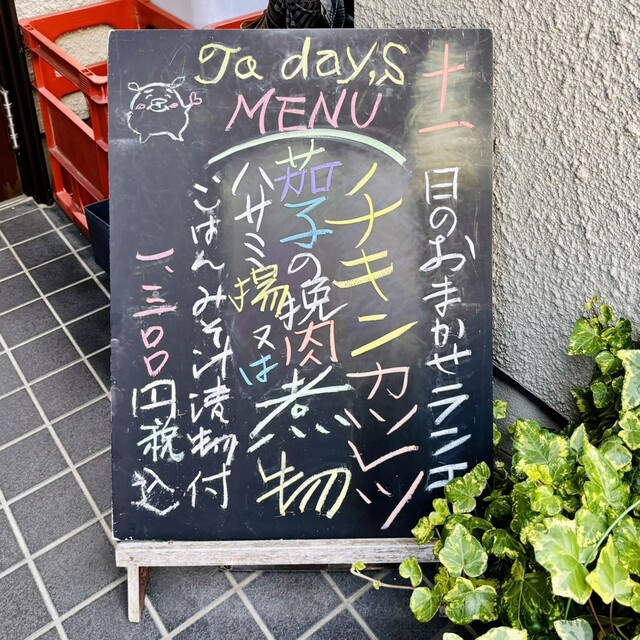 To day,s
MENU
十一日のおまかせランチ
チキンカツレツ
茄子の挽肉煮物
ハサミ揚又は
ごはんみそ汁漬物付
一、三〇〇円税込